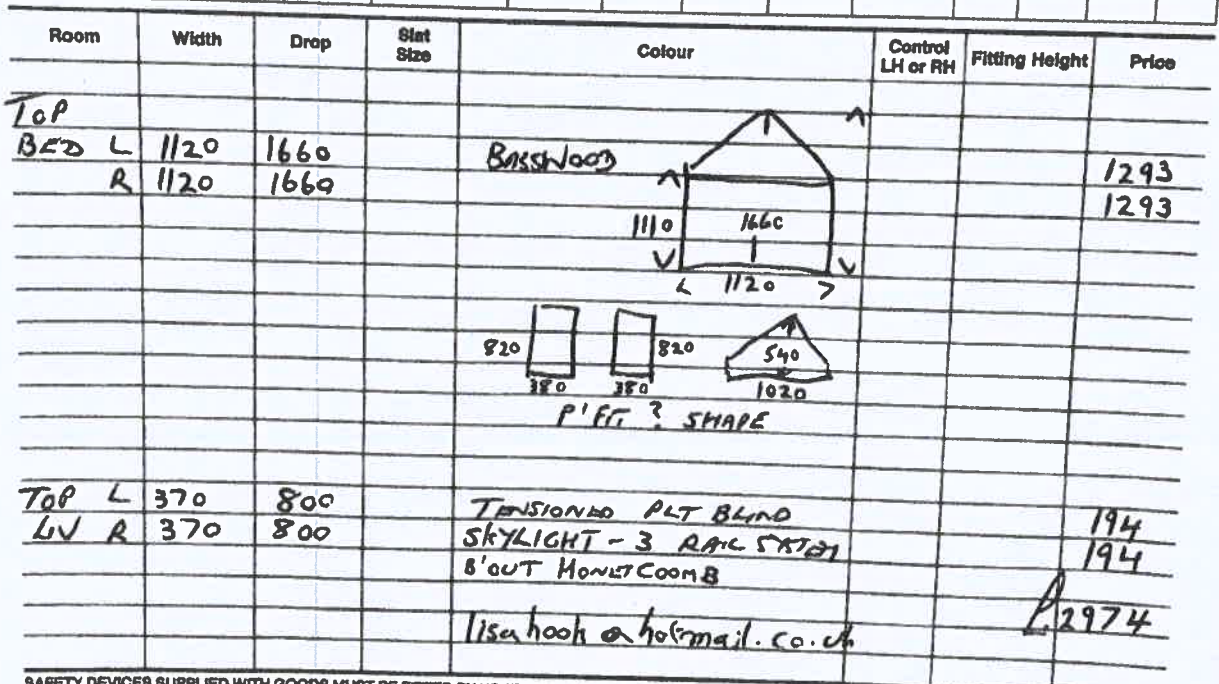 Room Width Drop Slat Size Colour Control LH or RH Fitting Height Price
TOP
BED L 1120 1660 BASSWOOD 1293
R 1120 1660 1293
1110 1660
1120
820 820 540
380 380 1020
P'FIT ? SHAPE
TOP L 370 800 TENSIONED PLT BLIND 194
LIV R 370 800 SKYLIGHT - 3 RAIL SYSTEM 194
B'OUT HONEYCOOMB
£2974
lisahook@hotmail.co.uk
SAFETY DEVICES SUPPLIED WITH GOODS MUST BE